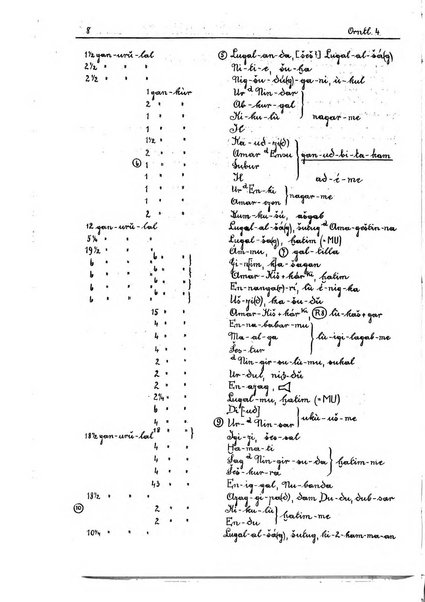 8 Orntl. 4
1½ gan-urú-lal ⑤ Lugal-an-da, [šeš!] Lugal-al-šá(g)
2½ " " " Ni-ti-e, šu-ḫa
2½ " " " Nig-šu-du(g)-ga-ni, ú-kul
1 gan-kùr Ur ᵈNin-dar
2 " " Ab-kur-gal
1 " " Ki-ku-lù } nagar-me
1 " " Il
1 " " Ka-ud-
2 " " Amar ᵈEnsu } gan-ud-bi-ta-kam
⑥ 1 " " Šubur
1 " " Il } ad-é-me
1 " " Ur ᵈEn-ki
1 " " Amar-ezen } nagar-me
2 " " Kum-ku-šú, ašgab
12 gan-urú-lal Lugal-al-šá(g), šutug ᵈAma-geštin-na
5¼ " " " Lugal-šá(g), ḫatim (=MU)
19½ " " " Am-mu, ⑦ gal-tilla
6 " " "
6 " " " Amar-Kiš+kár ᵏⁱ, ḫatim
6 " " " En-nanga(r)-ri, lù é-nig-ka
6 " " " Uš-, ka-šu-dŭ
15 " " Amar-Kiš+kár ᵏⁱ, (R8) lù-kas+gar
4 " " En-na-babar-mu
4 " " Ma-al-ga } lù-igi-lagab-me
4 " " Šeš-tur
4 " " ᵈNin-gir-su-lù-mu, sukal
2 " " Ur-dul,
2 " " En-azag,
2¼ " " Lugal-mu, ḫatim (=MU)
4 " " Di[-ud]
4 " " ⑨ Ur-ᵈNin-sar } ukù-uš-me
18½ gan-urú-lal } Igi-zi, šeš-sal
4 " " Ḫa-ma-ti
4 " " Šag ᵈNin-gir-su-da } ḫatim-me
4 " " Šeš-kur-ra
43 " " En-ig-gal, Nu-banda
18½ " " " Azag-gi-pa(d), dam Du-du, dub-sar
⑩ 2 " " Ki-ku-lù
2 " " En-du } ḫatim-me
10¼ " " " Lugal-al-šá(g), šutug, ki-2-kam-ma-an